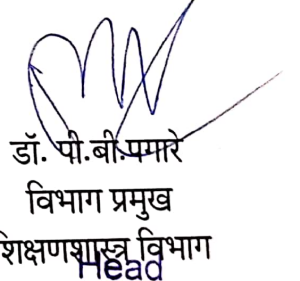 डॉ. पी.बी.पगारे
विभाग प्रमुख
शिक्षणशास्त्र विभाग
Head